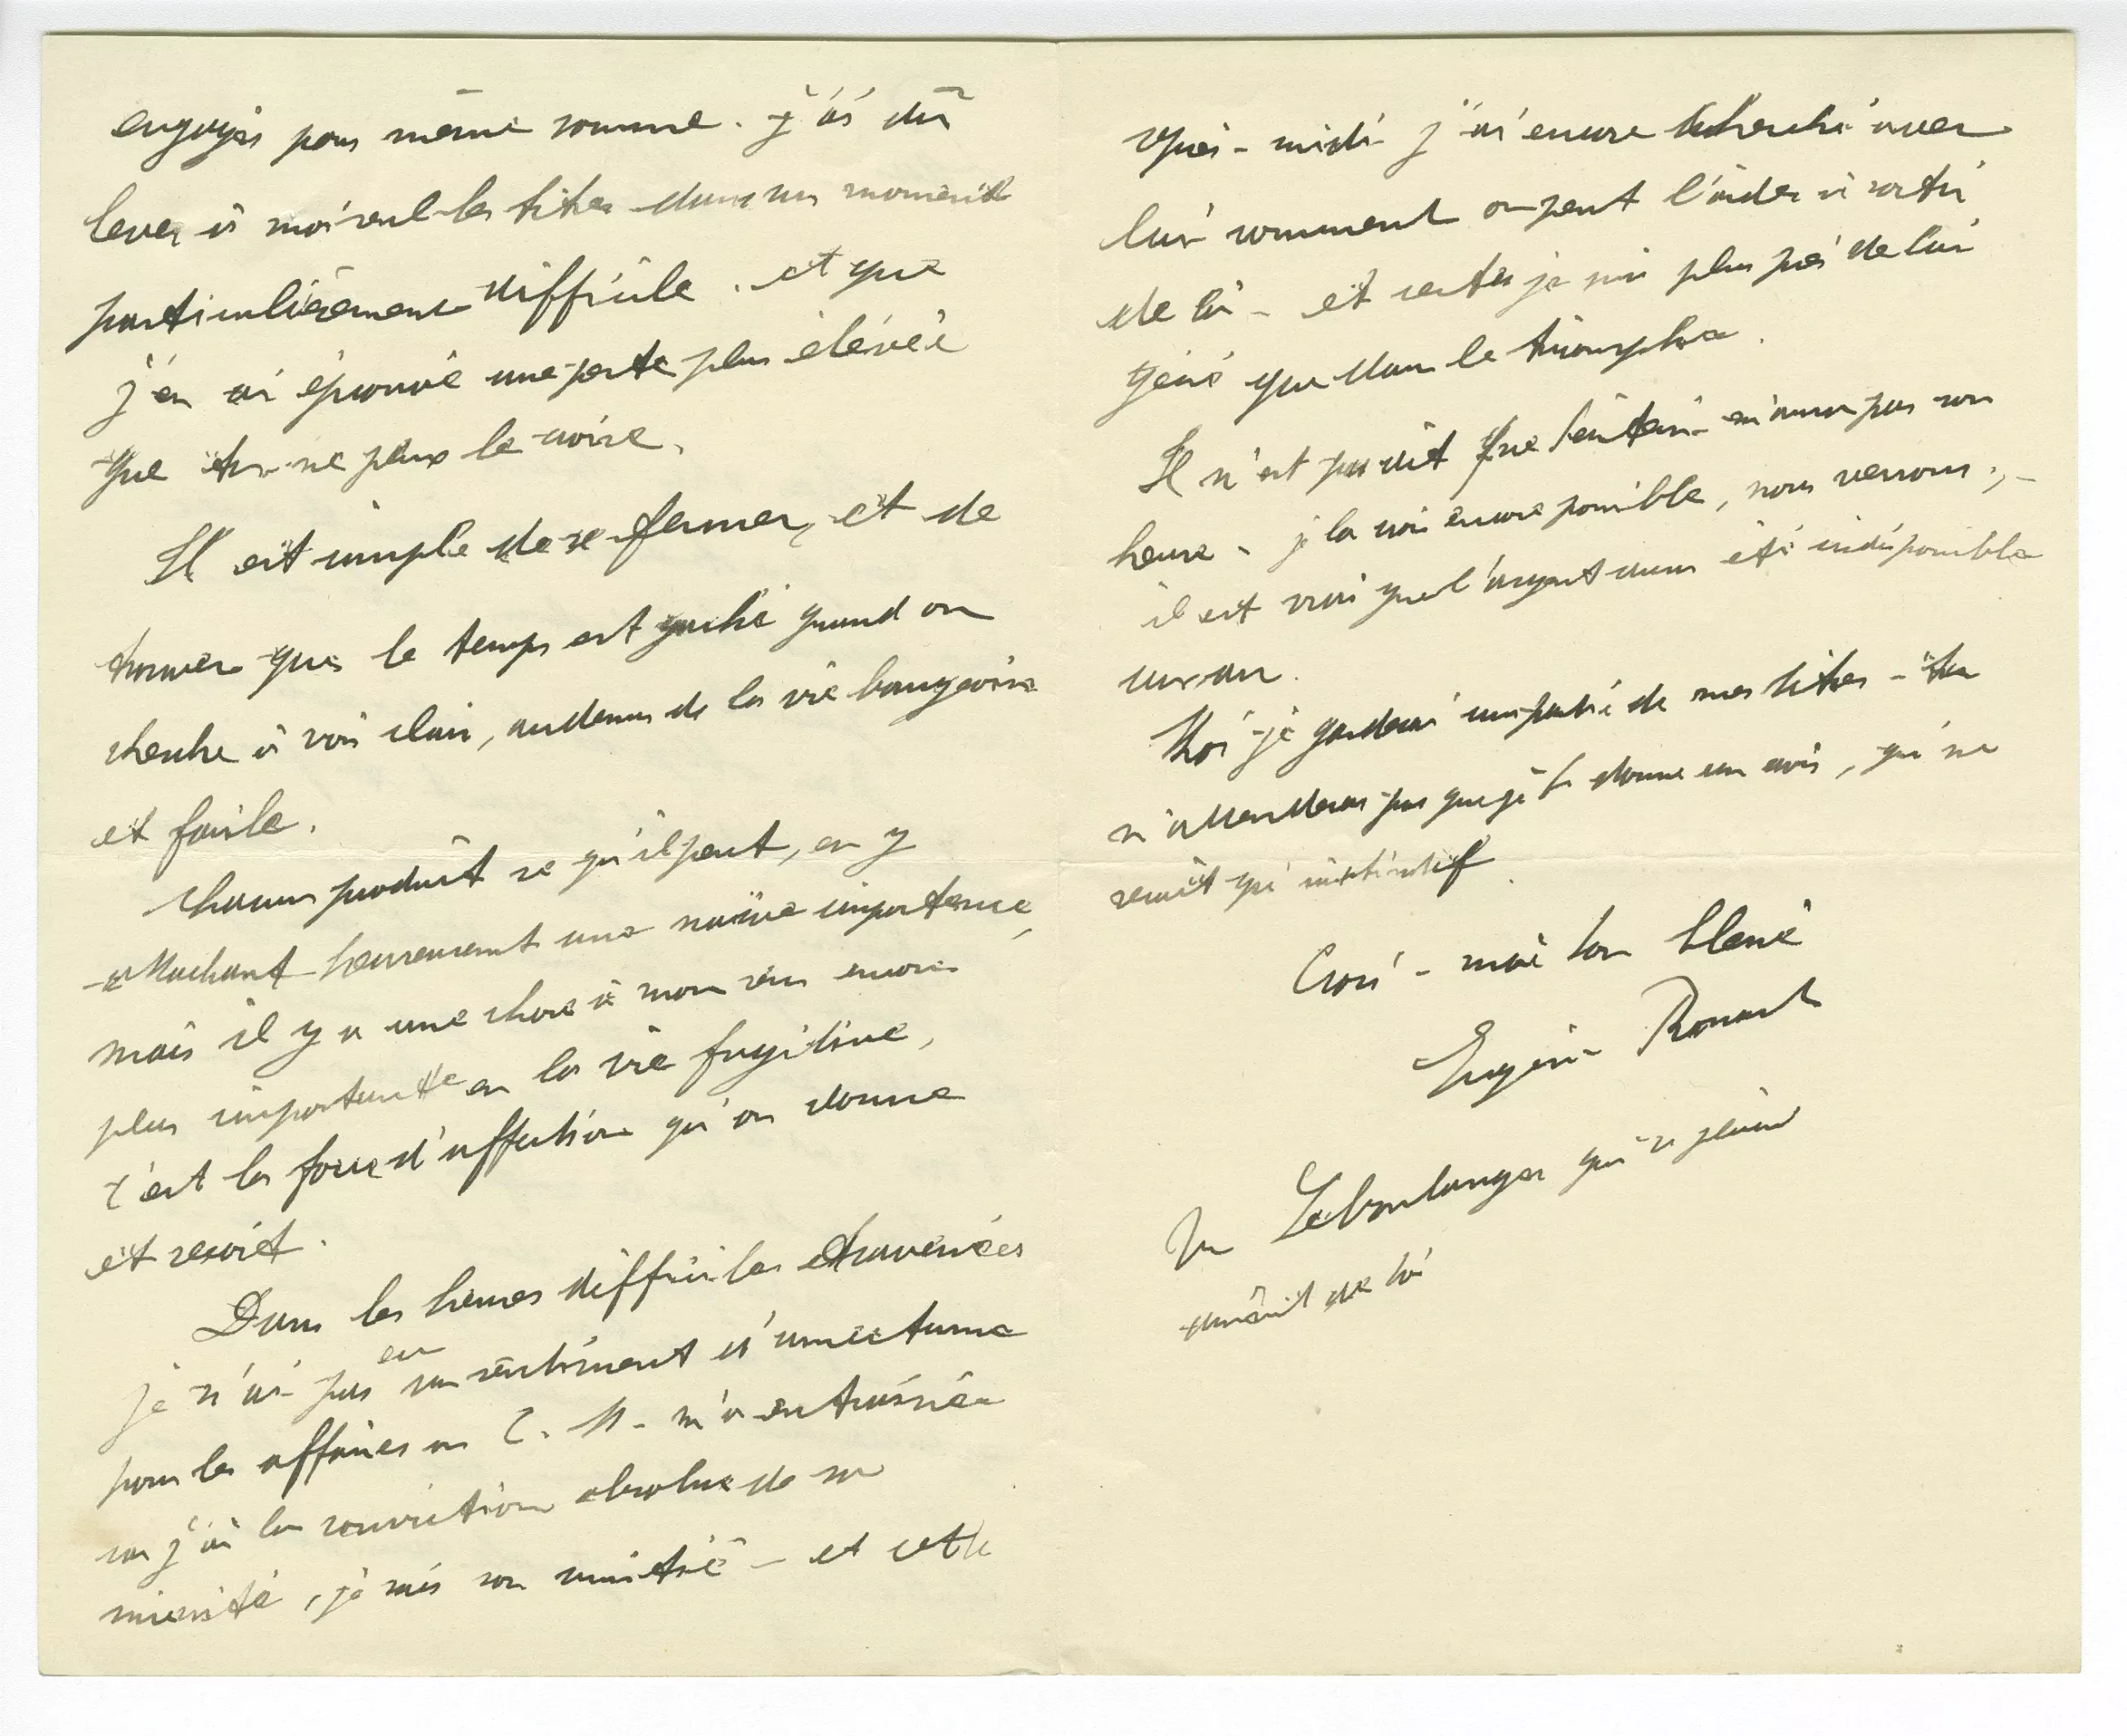 engagés pour même somme. j'ai dû
lever à moi seul les titres dans un moment
particulièrement difficile. et que
j'en ai éprouvé une perte plus élevée
que tu ne peux le croire.
Il est simple de se fermer, et de
trouver que le temps est gaché quand on
cherche à voir clair, au dessus de la vie bourgeoise
et facile.
Chacun produit ce qu'il peut, en y
attachant heureusement une naïve importance,
mais il y a une chose à mon sens encore
plus importante en la vie fugitive,
c'est la force d'affection qu'on donne
et reçoit.
Dans les heures difficiles traversées
je n'ai pas eu un sentiment d'amertume
pour les affaires où C. M. m'a entraîné
car j'ai la conviction absolue de sa
sincérité, je sais son amitié - et cette
après-midi j'ai encore cherché avec
lui comment on peut l'aider à sortir
de là - et certes je suis plus près de lui
gêné que dans le triomphe.
Il n'est pas dit que n'aura pas son
heure - je la crois encore possible, nous verrons, -
il est vrai que l'argent aura été indisponible
un an.
Moi je garderai une partie de mes titres - tu
n'attendras pas que je te donne un avis, qui ne
serait qu'instinctif.
Crois-moi ton
Eugène Rouart
Vu Leboulanger qui se plaint
de toi